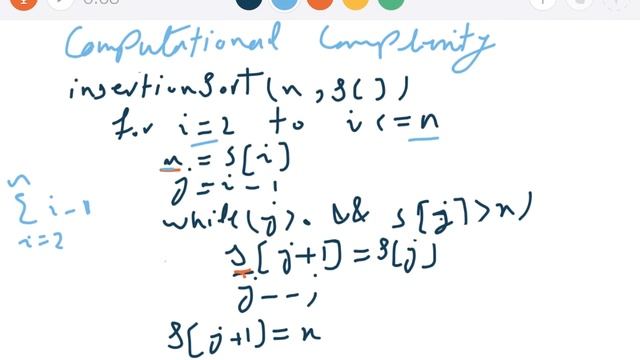 Computational Complexity
insertionSort(n, S[])
for i=2 to i<=n
x = S[i]
j = i-1
while(j>0 && S[j]>x)
S[j+1] = S[j]
j--;
S[j+1] = x
n
Σ i-1
i=2